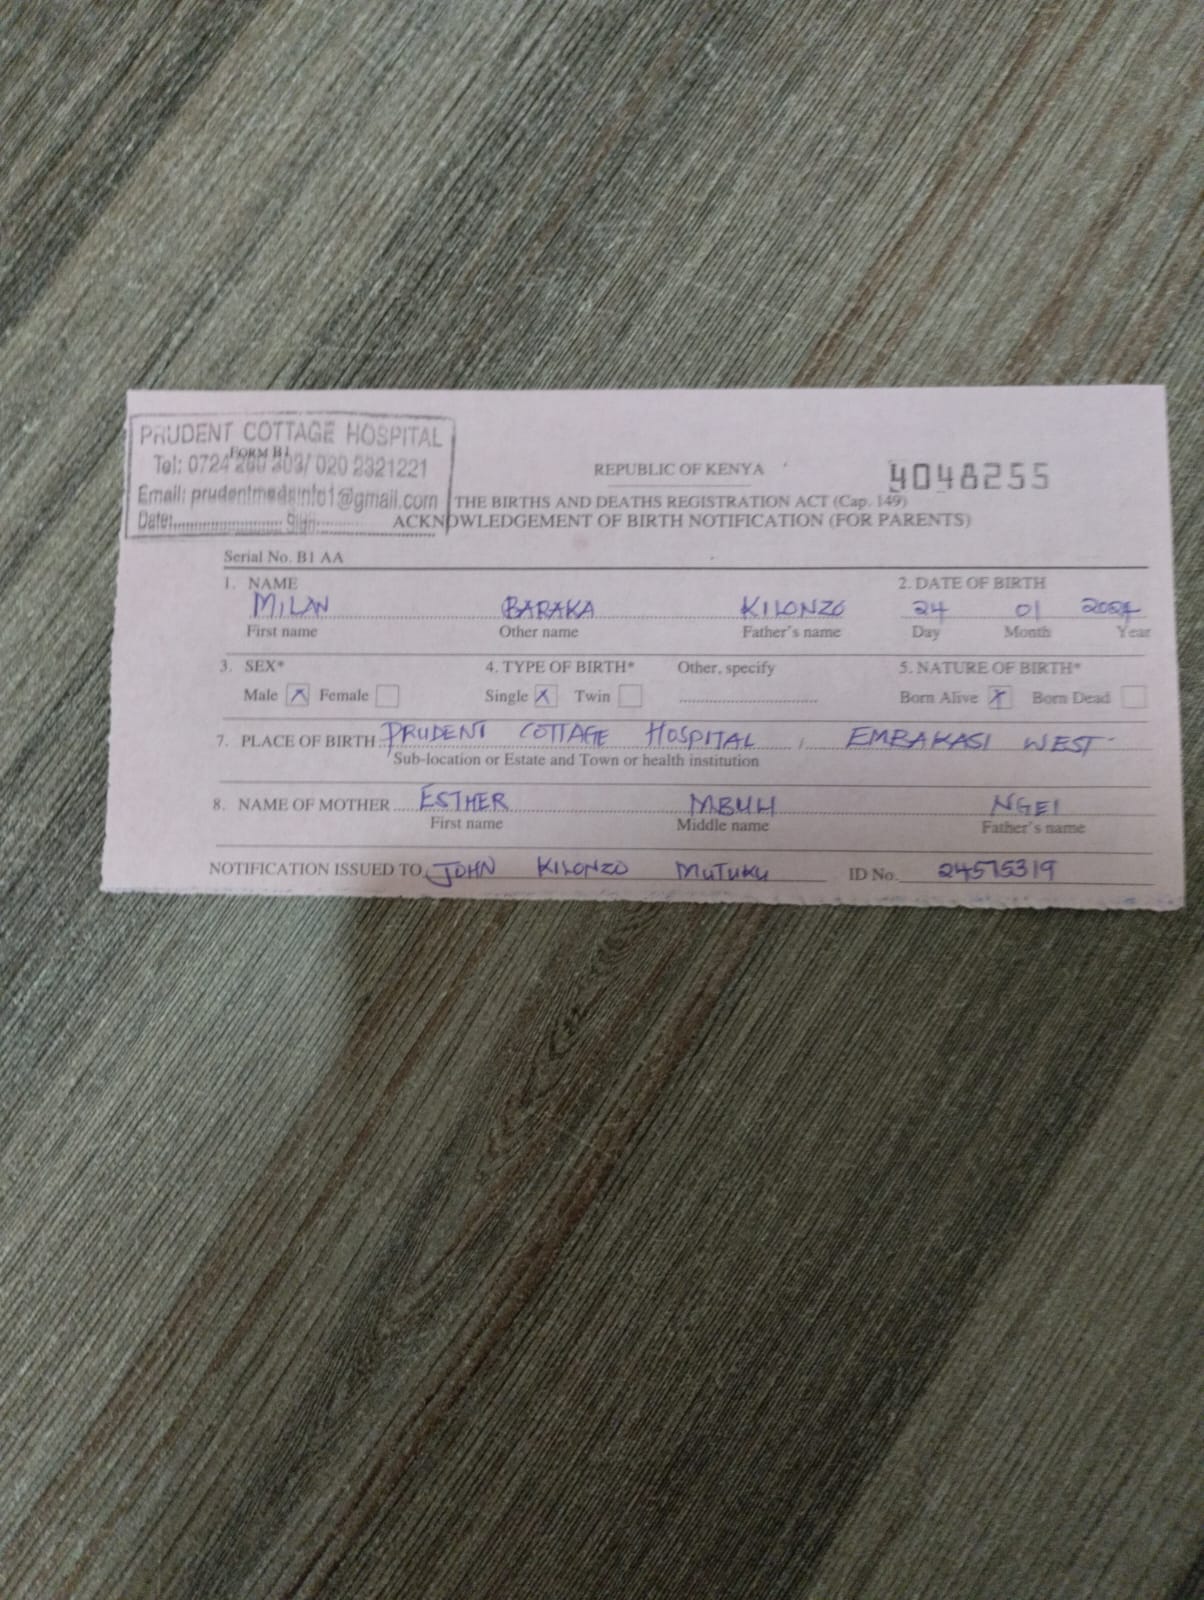 PRUDENT COTTAGE HOSPITAL
FORM B1
Tel: 0724 303/ 020 2321221
Email: prudentmedsinfo1@gmail.com
Date: Sign:
REPUBLIC OF KENYA
4048255
THE BIRTHS AND DEATHS REGISTRATION ACT (Cap. 149)
ACKNOWLEDGEMENT OF BIRTH NOTIFICATION (FOR PARENTS)
Serial No. B1 AA
1. NAME 2. DATE OF BIRTH
MILAN BARAKA KILONZO 24 01 2024
First name Other name Father's name Day Month Year
3. SEX* 4. TYPE OF BIRTH* Other, specify 5. NATURE OF BIRTH*
Male X Female Single X Twin Born Alive X Born Dead
7. PLACE OF BIRTH PRUDENT COTTAGE HOSPITAL, EMBAKASI WEST
Sub-location or Estate and Town or health institution
8. NAME OF MOTHER ESTHER NGEI
First name Middle name Father's name
NOTIFICATION ISSUED TO JOHN KILONZO MUTUKU ID No. 24575319